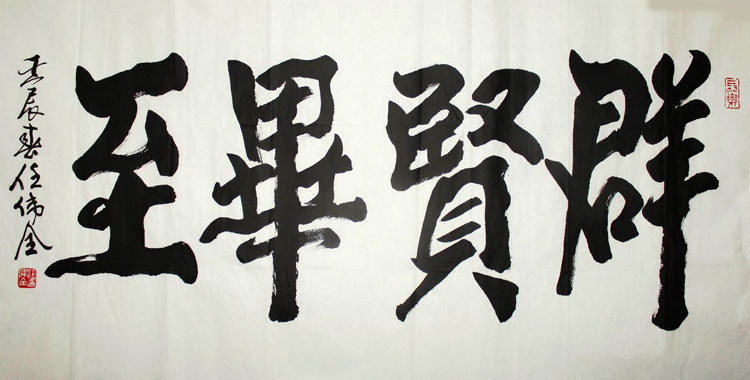 群賢畢至
壬辰春任伟全